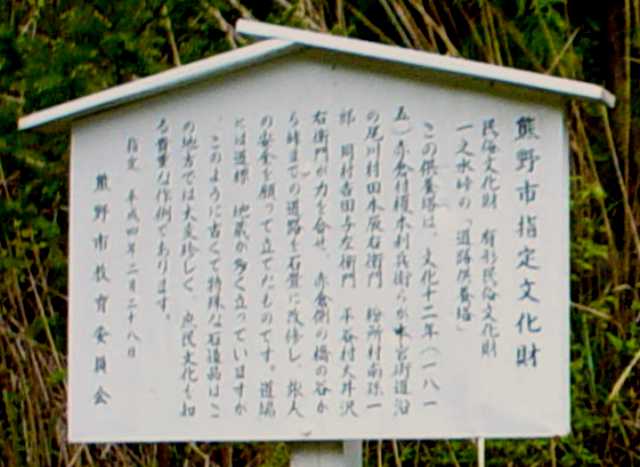 熊野市指定文化財
民俗文化財 有形民俗文化財
一之水峠の「道路供養塔」
この供養塔は、文化十二年(一八一
五)赤倉村榎本利兵衛らが本宮街道沿
の尾川村田本辰右衛門 粉所村南弥一
郎 同村吉田与左衛門 平谷村大井沢
右衛門が力を合せ、赤倉側の橋の谷か
ら峠までの道路を石畳に改修し、旅人
の安全を願って立てたものです。道端
には道標 地蔵が多く立っていますが
、このように古くて特殊な石造品はこ
の地方では大変珍しく、庶民文化を知
る貴重な作例であります。
指定 平成四年二月二十八日
熊野市教育委員会